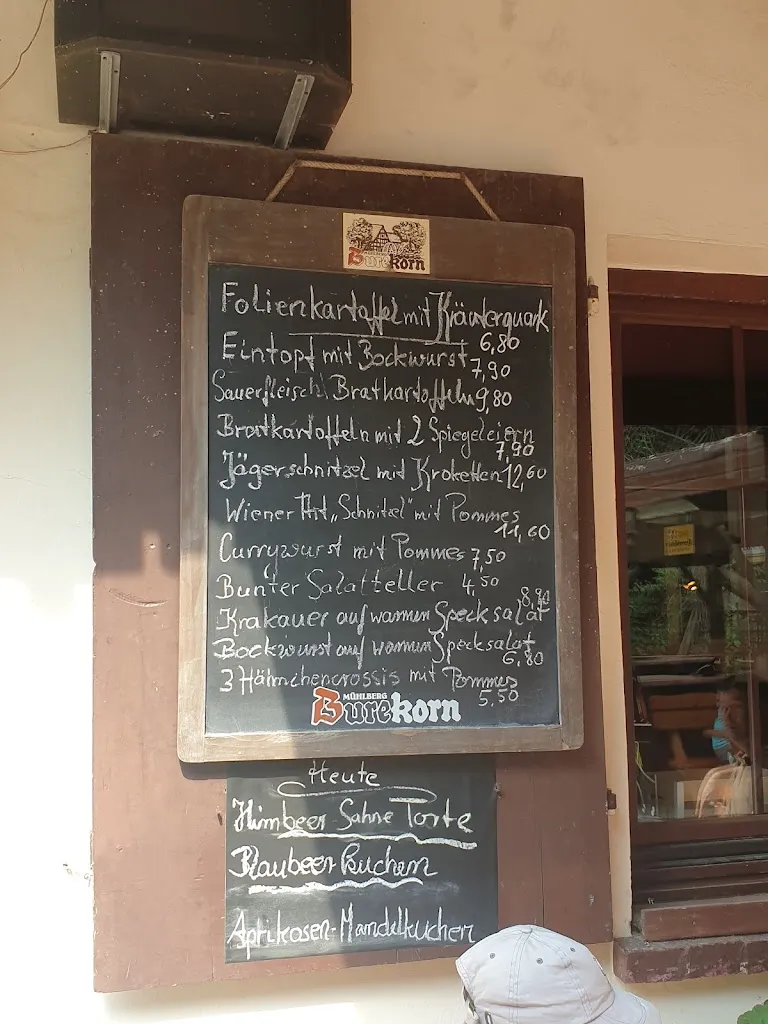 Burekorn
Folienkartoffel mit Kräuterquark
6,80
Eintopf mit Bockwurst
7,90
Sauerfleisch\ Bratkartoffeln 9,80
Bratkartoffeln mit 2 Spiegeleiern
7,90
Jägerschnitzel mit Kroketten 12,60
Wiener Art „Schnitzel" mit Pommes
11,60
Currywurst mit Pommes 7,50
Bunter Salatteller 4,50
8,90
Krakauer auf warmen Specksalat
Bockwurst auf warmen Specksalat
6,80
3 Hähnchencrossis mit Pommes
5,50
MÜHLBERG
Burekorn
Heute
Himbeer Sahne Torte
Blaubeer Kuchen
Aprikosen-Mandelkuchen